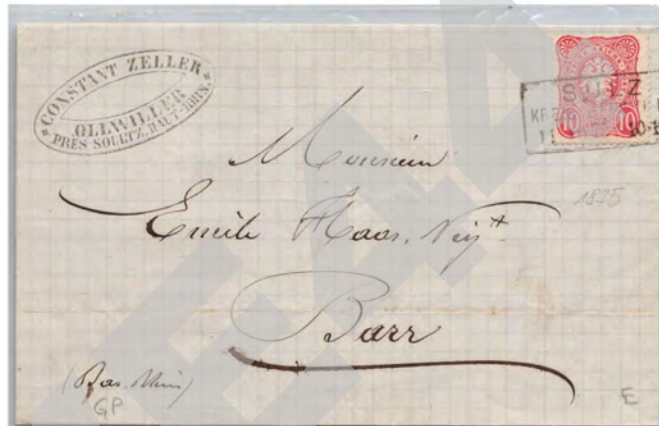 CONSTANT ZELLER
OLLWILLER
PRÈS SOULTZ, HAUT-RHIN.
10
10
SULZ
Monsieur
1875
Emile Haas, Ngt
Barr
(Bas. Rhin)
GP
E